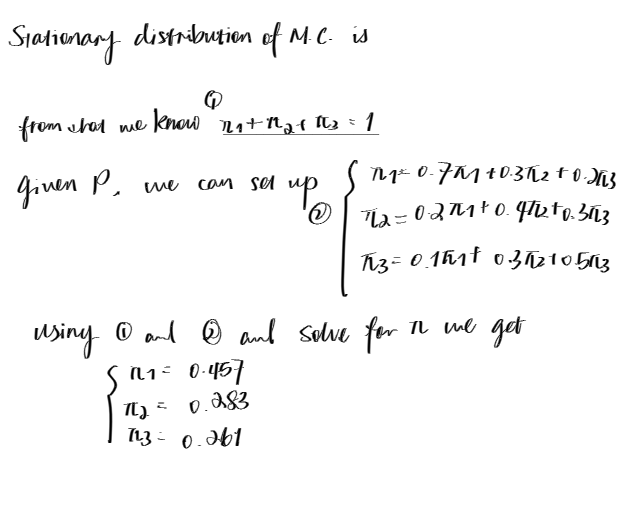 Stationary distribution of M.C. is
①
from what we know π1+π2+π3 = 1
given P, we can set up
②
π1= 0.7π1 +0.3π2 + 0.2π3
π2= 0.2π1+ 0.4π2+0.3π3
π3= 0.1π1+ 0.3π2+0.5π3
using ① and ② and solve for π we get
π1= 0.457
π2 = 0.283
π3= 0.261